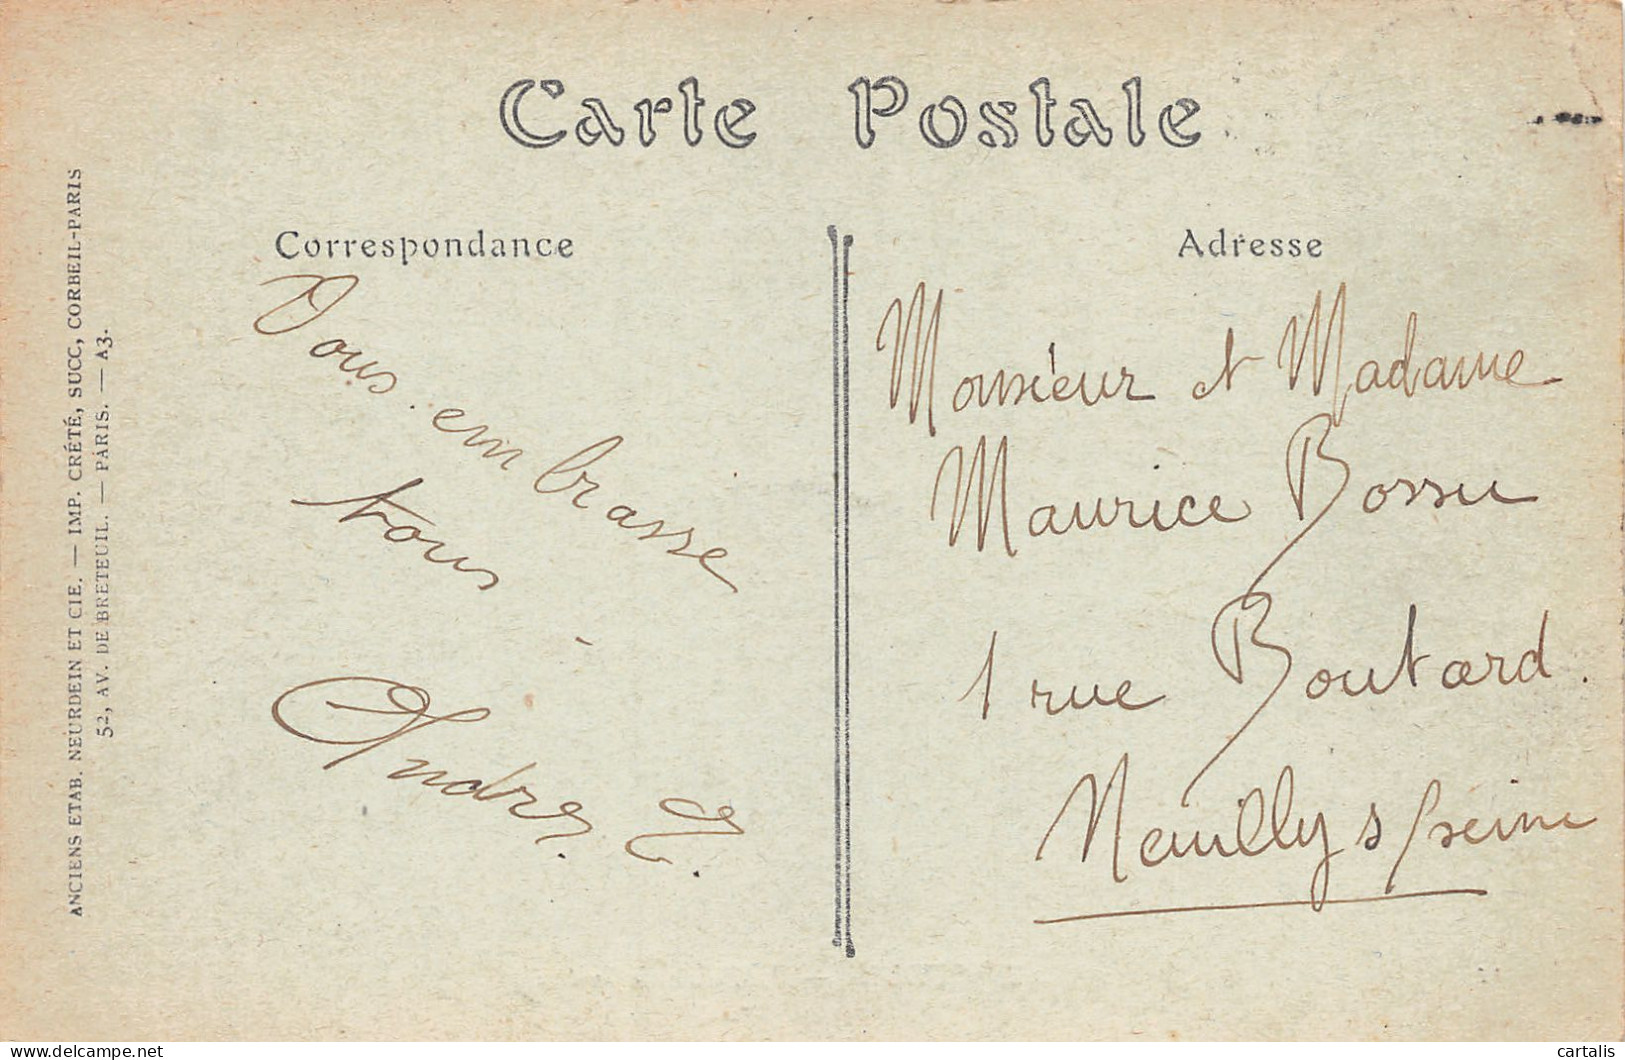 Carte Postale
Correspondance
Vous embrasse
tous
André
Adresse
Monsieur et Madame
Maurice Bossu
1 rue Boutard.
Neuilly s/seine
ANCIENS ETAB. NEURDEIN ET CIE. — IMP. CRÉTÉ, SUCC, CORBEIL-PARIS
52, AV. DE BRETEUIL. — PARIS. — A3.
delcampe.net
cartalis